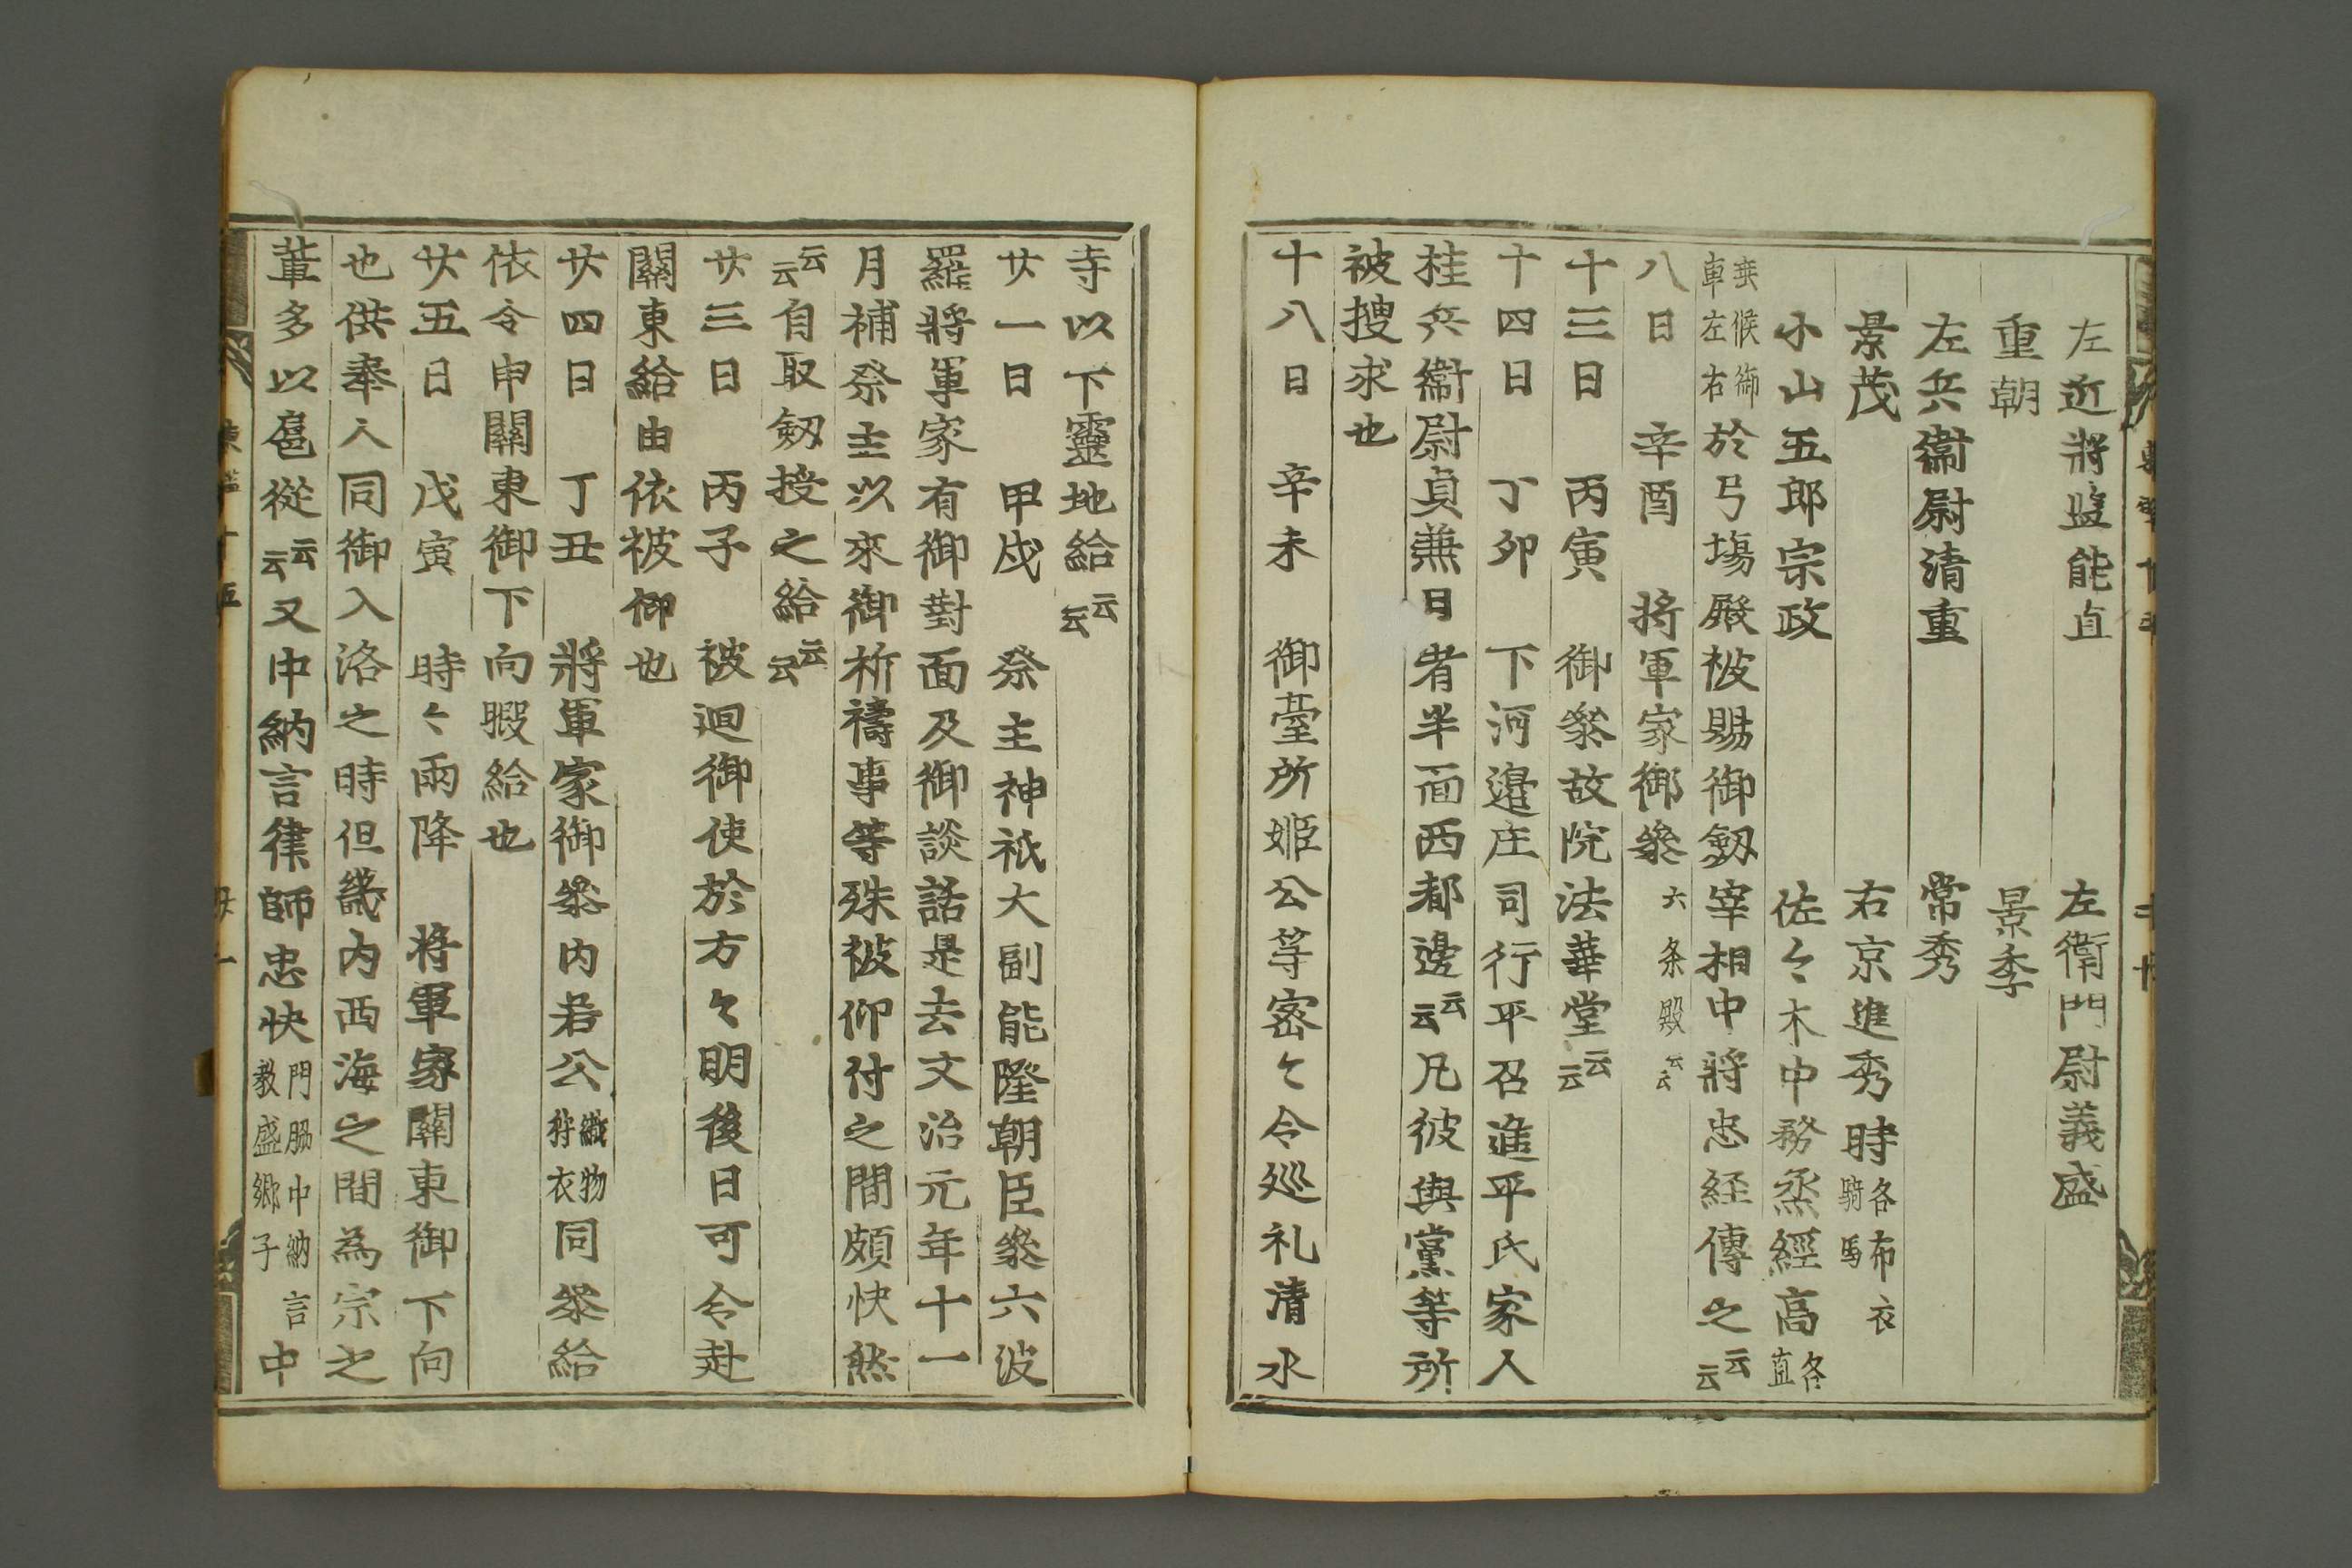 左近將監能直　左衛門尉義盛
重朝　景季
左兵衞尉清重　常秀
景茂　右京進秀時各布衣騎馬
小山五郎宗政　佐々木中務烝經高各直
垂候御車左右於弓塲殿被賜御劔宰相中將忠経傳之云云
八日　辛酉　将軍家御叅六条殿云云
十三日　丙寅　御叅故院法華堂云云
十四日　丁卯　下河邉庄司行平召進平氏家人
桂兵衞尉貞兼日者半面西都邊云云凡彼與黨等所
被搜求也
十八日　辛未　御臺所姫公等密々令廵礼清水
寺以下靈地給云云
廿一日　甲戌　祭主神祇大副能隆朝臣叅六波
羅將軍家有御對面及御談話是去文治元年十一
月補祭主以來御祈禱事等殊被仰付之間頗快然
云云自取劔授之給云云
廿三日　丙子　被廻御使於方々明後日可令赴
關東給由依被仰也
廿四日　丁丑　將軍家御叅内若公織物狩衣同叅給
依令申關東御下向暇給也
廿五日　戊寅　時々雨降　将軍家關東御下向
也供奉人同御入洛之時但畿内西海之間為宗之
輩多以扈從云云又中納言律師忠快門脇中納言教盛卿子中